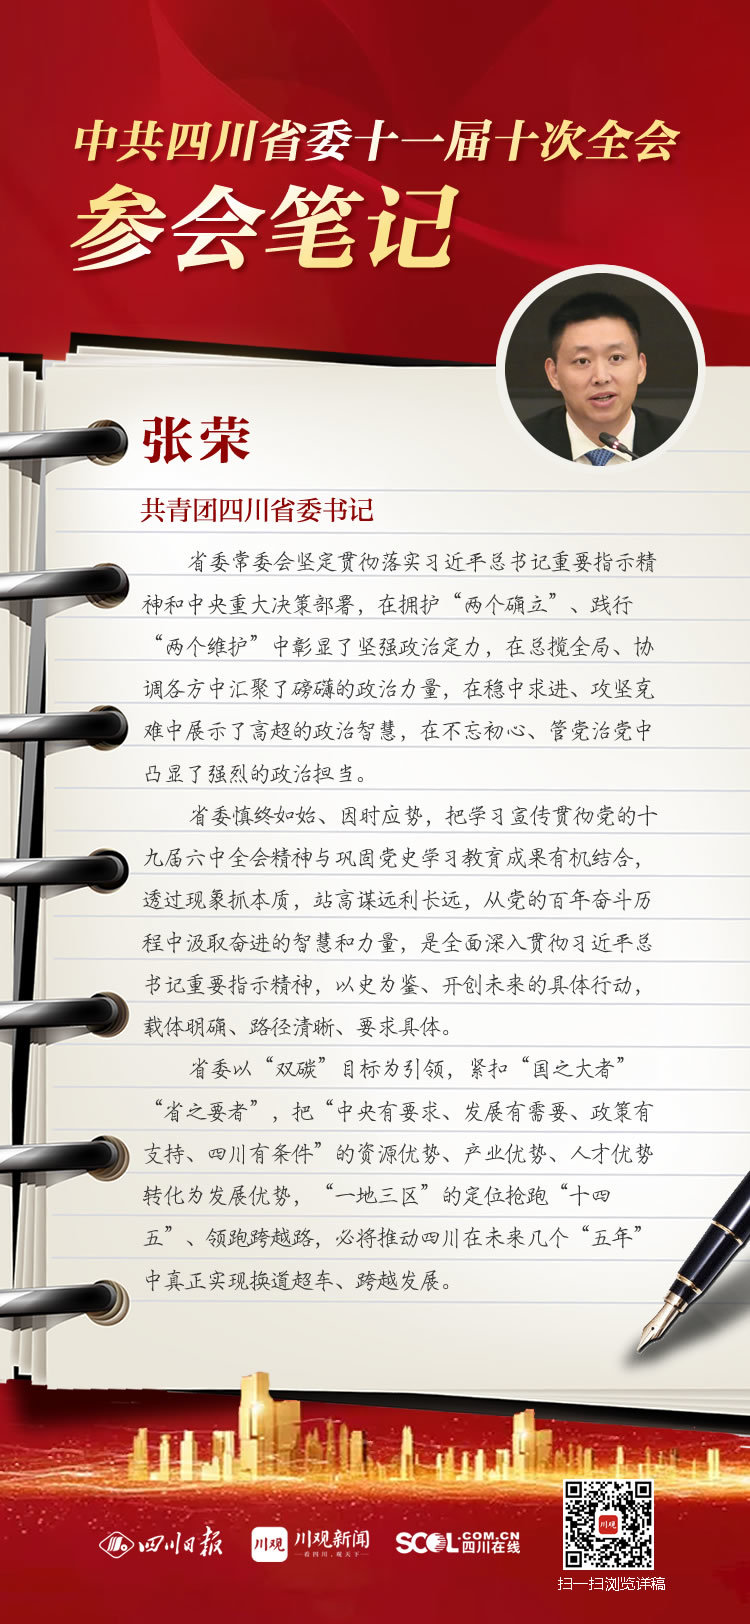 中共四川省委十一届十次全会
参会笔记
张荣
共青团四川省委书记
省委常委会坚定贯彻落实习近平总书记重要指示精
神和中央重大决策部署，在拥护“两个确立”、践行
“两个维护”中彰显了坚强政治定力，在总揽全局、协
调各方中汇聚了磅礴的政治力量，在稳中求进、攻坚克
难中展示了高超的政治智慧，在不忘初心、管党治党中
凸显了强烈的政治担当。
省委慎终如始、因时应势，把学习宣传贯彻党的十
九届六中全会精神与巩固党史学习教育成果有机结合，
透过现象抓本质，站高谋远利长远，从党的百年奋斗历
程中汲取奋进的智慧和力量，是全面深入贯彻习近平总
书记重要指示精神，以史为鉴、开创未来的具体行动，
载体明确、路径清晰、要求具体。
省委以“双碳”目标为引领，紧扣“国之大者”
“省之要者”，把“中央有要求、发展有需要、政策有
支持、四川有条件”的资源优势、产业优势、人才优势
转化为发展优势，“一地三区”的定位抢跑“十四
五”、领跑跨越路，必将推动四川在未来几个“五年”
中真正实现换道超车、跨越发展。
四川日报
川观
川观新闻
一看四川，观天下一
SCOL.COM.CN
四川在线
川观
扫一扫浏览详稿